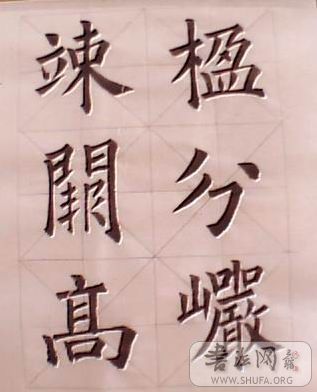 楹分巗
竦闕高
书法网
WWW.SHUFA.ORG